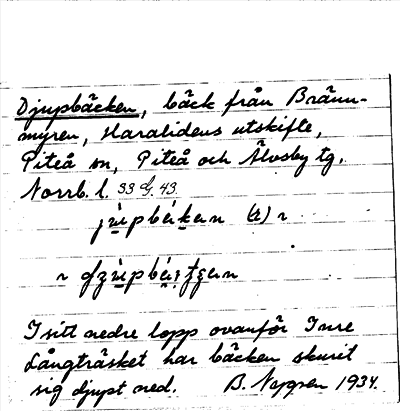 Djupbäcken, bäck från Bränn-
myren, Haralidens utskifte,
Piteå sn, Piteå och Älvsby tg,
Norrb. l. 33 G. 43
I sitt nedre lopp ovanför Inre
Långträsket har bäcken skurit
sig djupt ned. B. Nygren 1934.